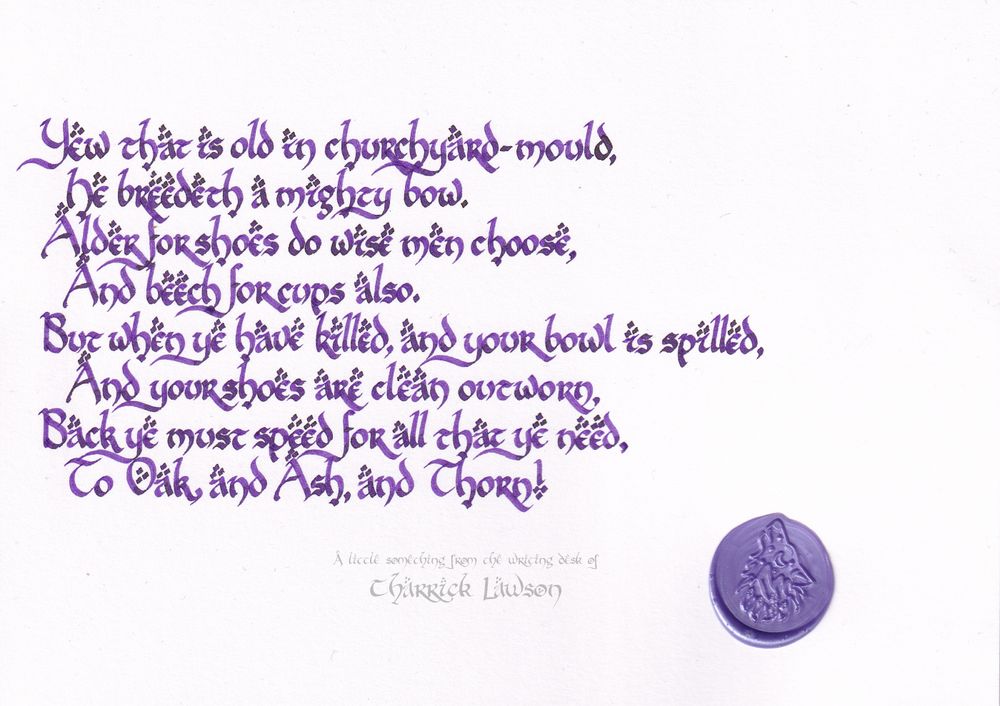 Yew that is old in churchyard-mould,
He breedeth a mighty bow.
Alder for shoes do wise men choose,
And beech for cups also.
But when ye have killed, and your bowl is spilled,
And your shoes are clean outworn,
Back ye must speed for all that ye need,
To Oak, and Ash, and Thorn!
A little something from the writing desk of
Tharrick Lawson